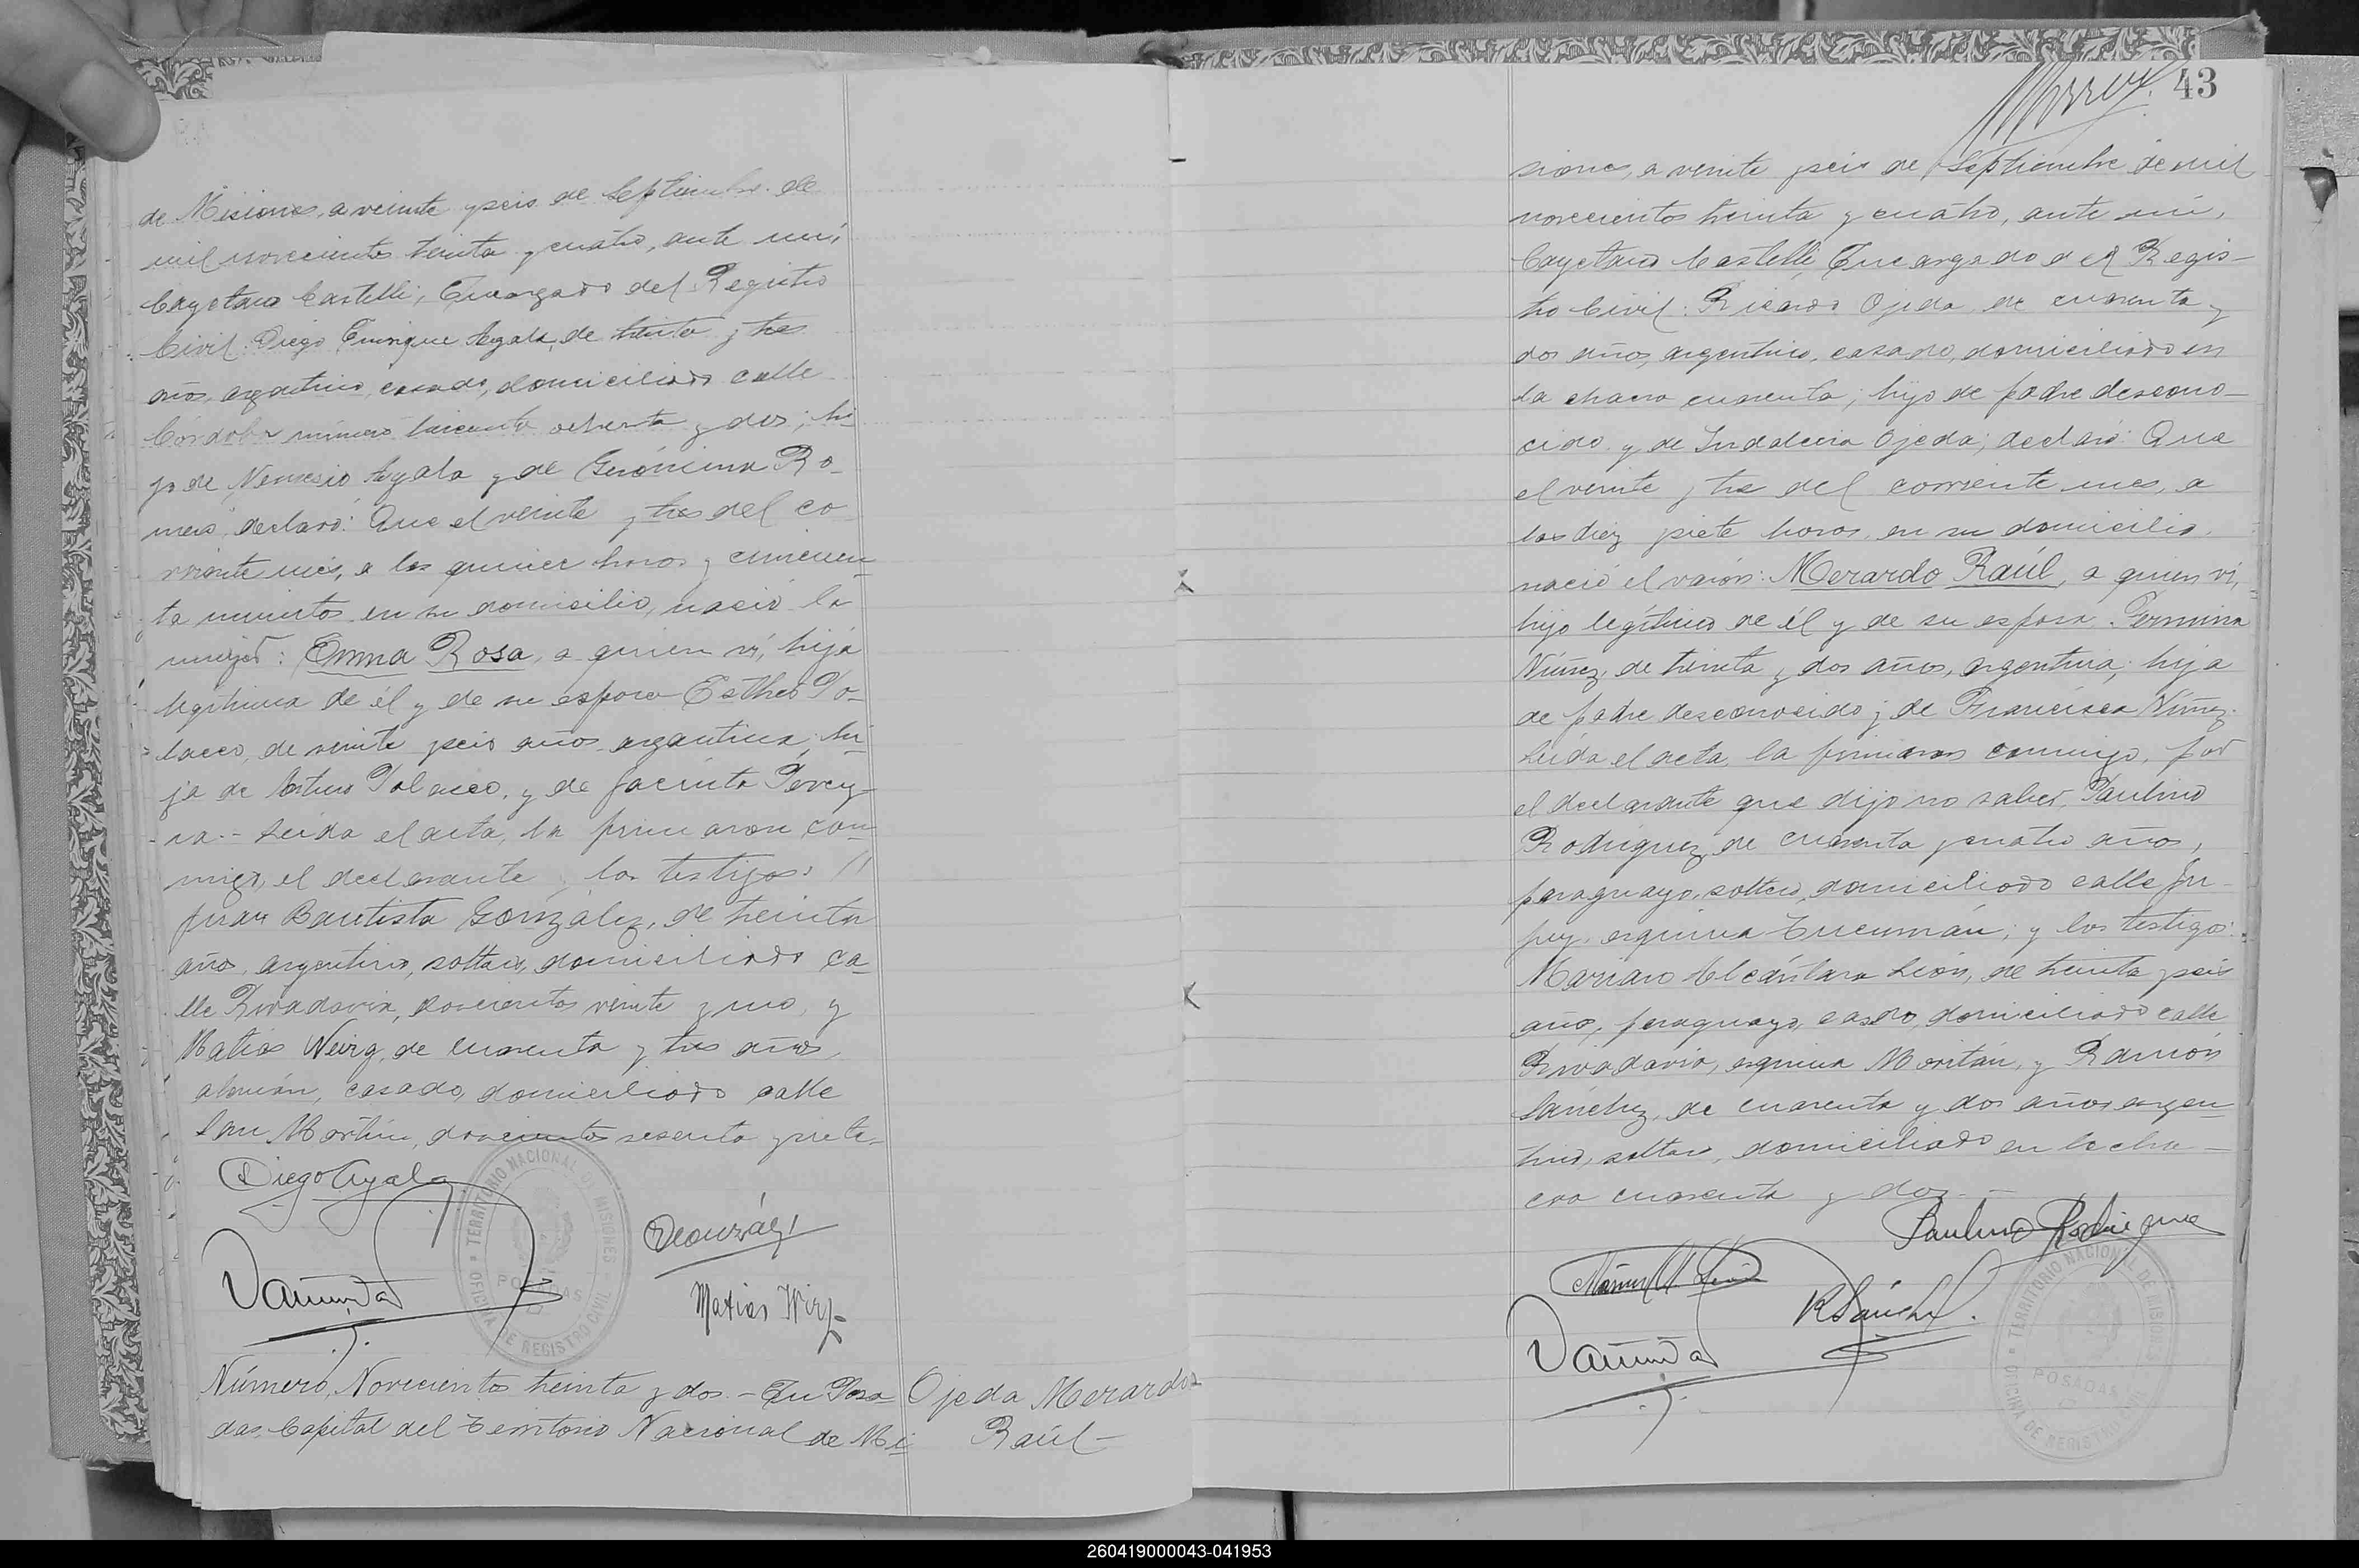 de Misiones, a veinte y seis de Septiembre de
mil novecientos treinta y cuatro, ante mí,
Cayetano Castelli, Encargado del Registro
Civil: Diego Enrique Ayala, de treinta y tres
años, argentino, casado, domiciliado calle
Córdoba número trescientos ochenta y dos; hi-
jo de Nemesio Ayala y de Gerónima Ro-
mero declaró: Que el veinte y tres del co-
rriente mes, a las quince horas y cincuen-
ta minutos en su domicilio, nació la
mujer: Emma Rosa, a quien ví, hija
legítima de él y de su esposa Esther Po-
lacco, de veinte y seis años argentina, hi-
ja de Arturo Polacco, y de Jacinta Perey-
ra.- Leída el acta, la firmaron con-
migo, el declarante y los testigos: //
Juan Bautista González, de treinta
años, argentino, soltero, domiciliado ca-
lle Rivadavia, doscientos veinte y uno, y
Matías Wirz, de cuarenta y tres años,
alemán, casado, domiciliado calle
San Martín, doscientos sesenta y siete.
Diego Ayala
TERRITORIO NACIONAL DE MISIONES
POSADAS
OFICINA DE REGISTRO CIVIL
Matias Wirz
Número, Novecientos treinta y dos.- En Posa-
das Capital del Territorio Nacional de Mi-
Ojeda Merardo
Raúl-
43
siones, a veinte y seis de Septiembre de mil
novecientos treinta y cuatro, ante mí,
Cayetano Castelli, Encargado del Regis-
tro Civil: Ricardo Ojeda, de cuarenta y
dos años, argentino, casado, domiciliado en
la chacra cuarenta; hijo de padre descono-
cido y de Indalecia Ojeda; declaró: Que
el veinte y tres del corriente mes, a
las diez y siete horas, en su domicilio,
nació el varón: Merardo Raúl, a quien ví,
hijo legítimo de él y de su esposa Fermina
Núñez, de treinta y dos años, argentina, hija
de padre desconocido y de Francisca Núñez.
Leída el acta, la firmaron conmigo, por
el declarante que dijo no saber, Paulino
Rodríguez, de cuarenta y cuatro años,
paraguayo, soltero, domiciliado calle Ju-
juy, esquina Tucumán; y los testigos:
Mariano Alcántara León, de treinta y seis
años, paraguayo, casado, domiciliado calle
Rivadavia, esquina Moritán, y Ramón
Sánchez, de cuarenta y dos años argen-
tino, soltero, domiciliado en la cha-
cra cuarenta y dos.-
Paulino Rodrigue
R Sánchez.
TERRITORIO NACIONAL DE MISIONES
POSADAS
OFICINA DE REGISTRO CIVIL
260419000043-041953